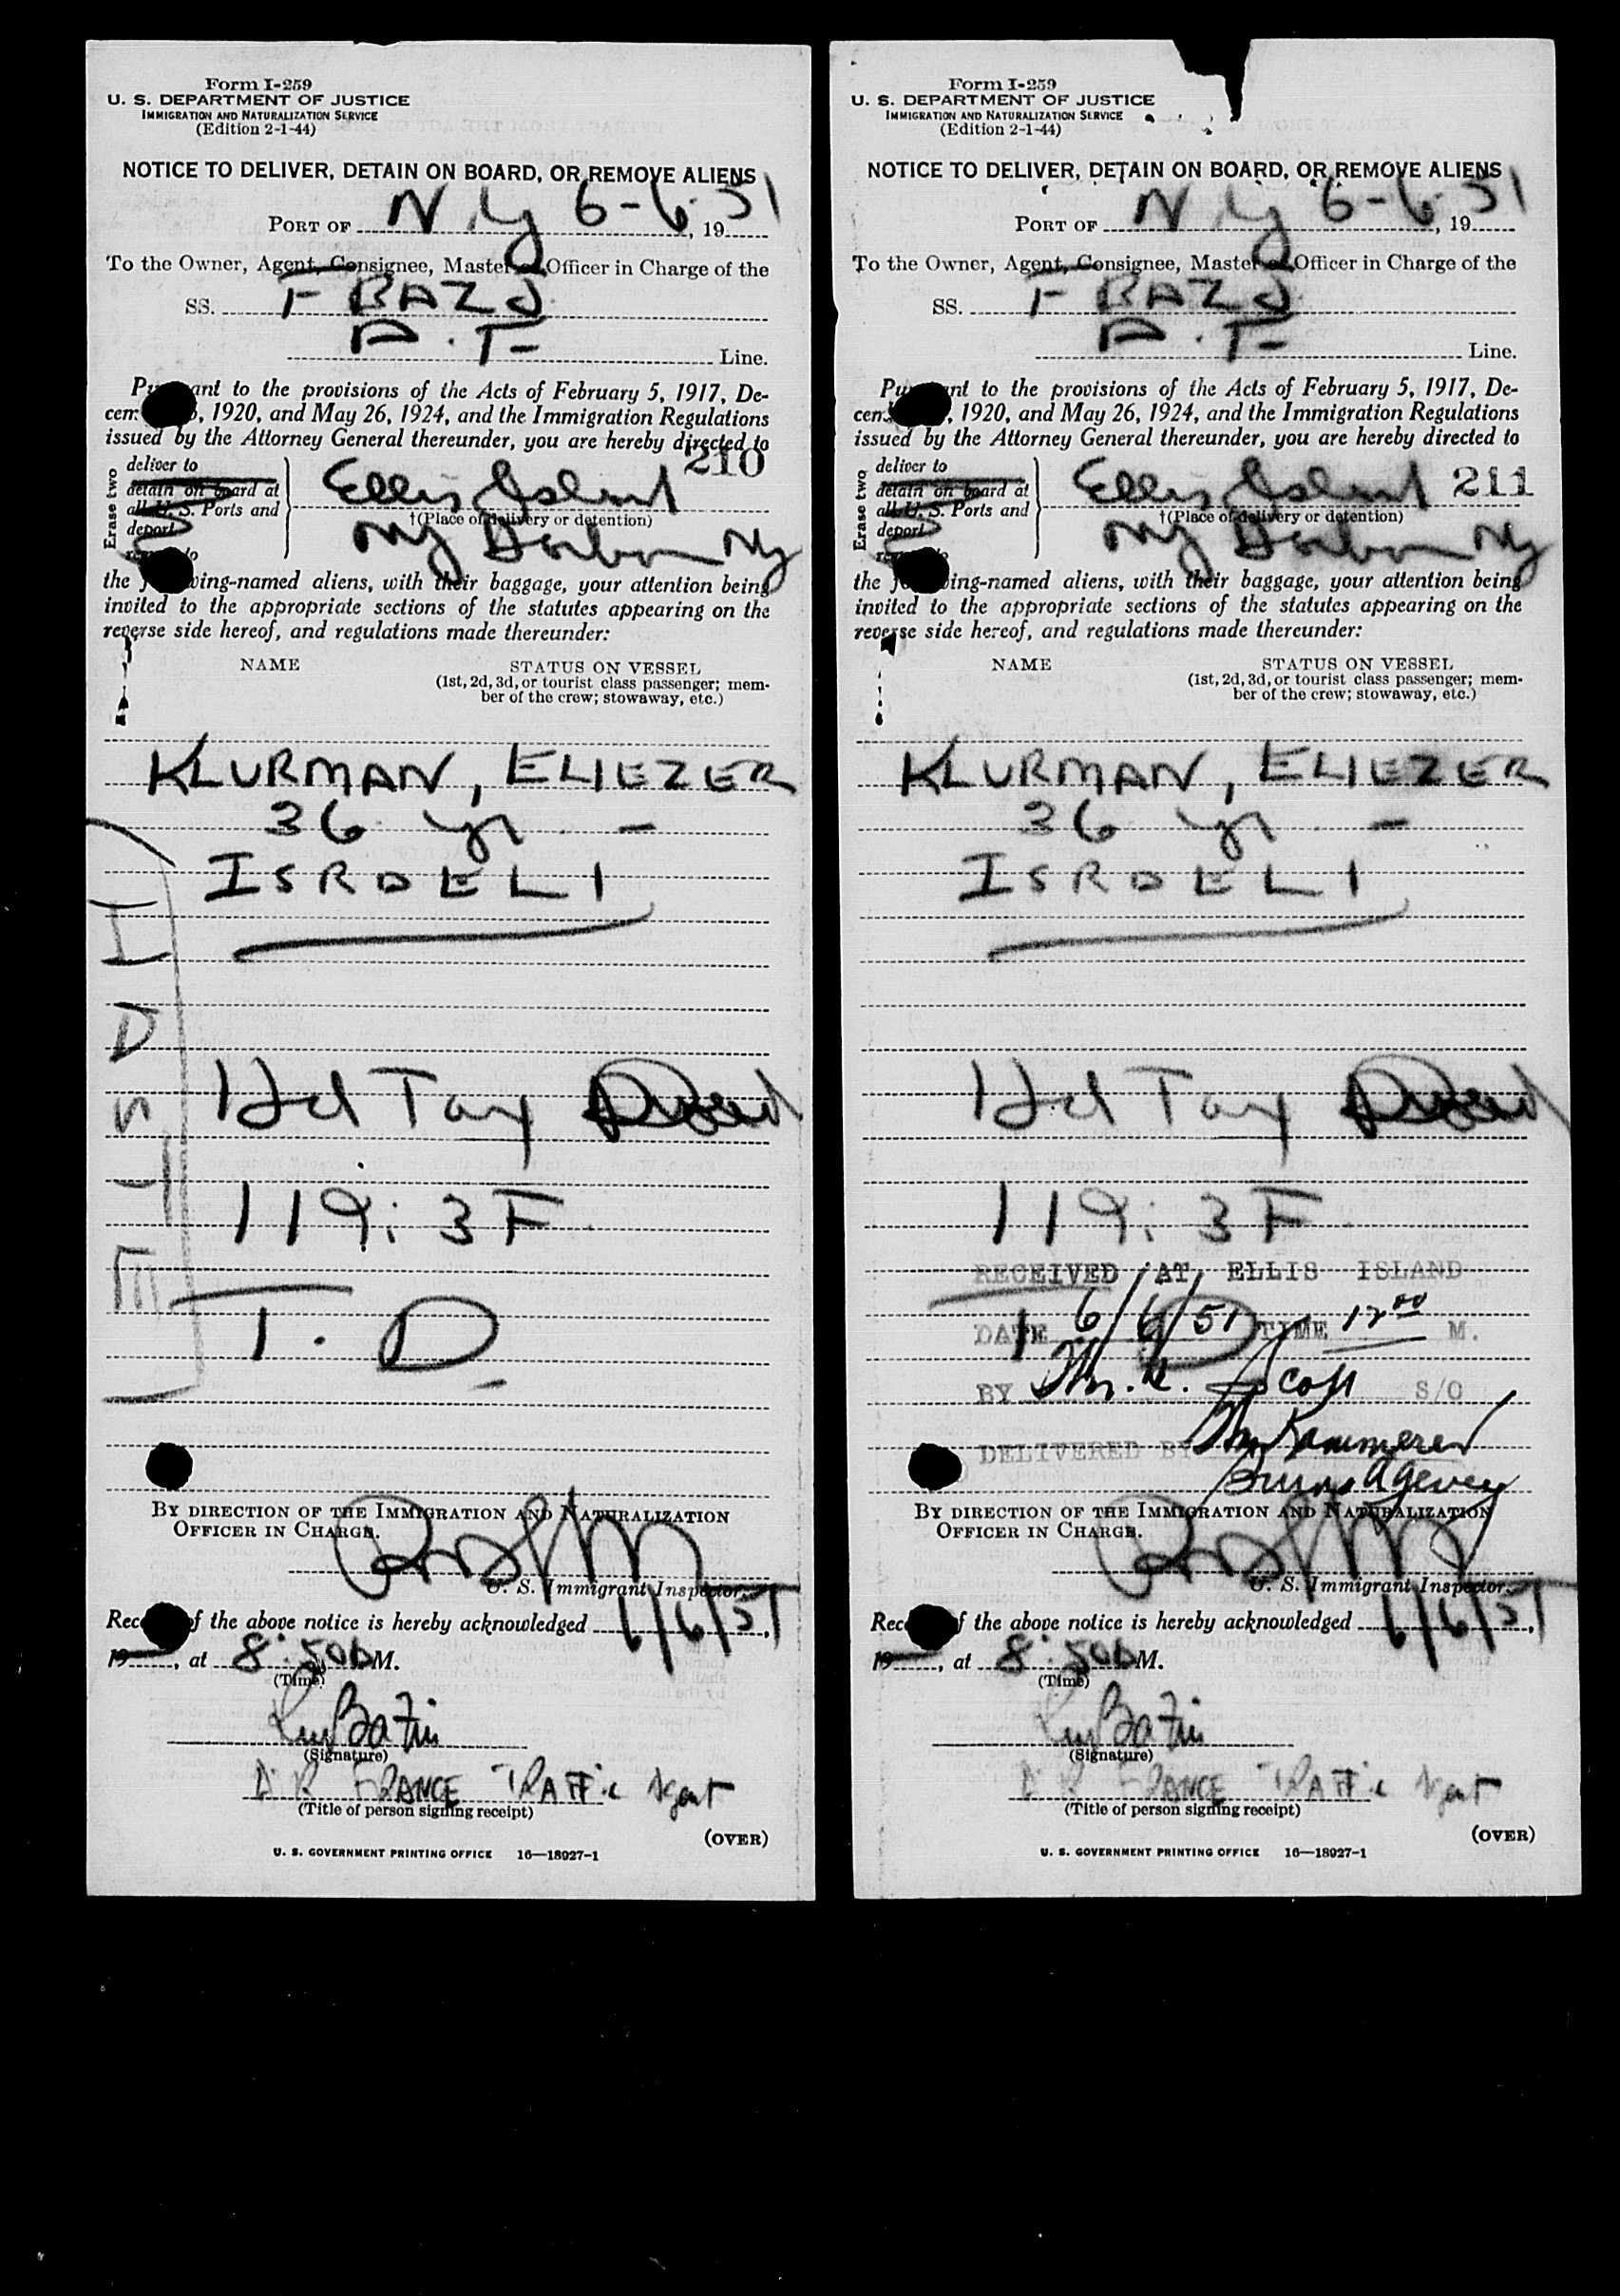 Form I-259
U. S. DEPARTMENT OF JUSTICE
IMMIGRATION AND NATURALIZATION SERVICE
(Edition 2-1-44)
NOTICE TO DELIVER, DETAIN ON BOARD, OR REMOVE ALIENS
PORT OF N.Y 6-6-51, 19
To the Owner, Agent, Consignee, Master or Officer in Charge of the
SS. F BAZJ
A.F Line.
Pursuant to the provisions of the Acts of February 5, 1917, De-
cem 1920, and May 26, 1924, and the Immigration Regulations
issued by the Attorney General thereunder, you are hereby directed to
210
Erase two
deliver to
detain on board at
all U. S. Ports and
deport
remove to
Ellis Island
†(Place of delivery or detention)
NY Harbor NY
the following-named aliens, with their baggage, your attention being
invited to the appropriate sections of the statutes appearing on the
reverse side hereof, and regulations made thereunder:
NAME STATUS ON VESSEL
(1st, 2d, 3d, or tourist class passenger; mem-
ber of the crew; stowaway, etc.)
KLURMAN, ELIEZER
36 yr. -
ISRAELI
Hd Tax
119: 3F
T. D
BY DIRECTION OF THE IMMIGRATION AND NATURALIZATION
OFFICER IN CHARGE.
U. S. Immigrant Inspector.
Receipt of the above notice is hereby acknowledged 6/6/51,
19, at 8:50 M.
(Time)
(Signature)
AIR FRANCE TRAFFIC Agent
(Title of person signing receipt)
(OVER)
U. S. GOVERNMENT PRINTING OFFICE 16—18927-1
Form I-259
U. S. DEPARTMENT OF JUSTICE
IMMIGRATION AND NATURALIZATION SERVICE
(Edition 2-1-44)
NOTICE TO DELIVER, DETAIN ON BOARD, OR REMOVE ALIENS
PORT OF N.Y 6-6-51, 19
To the Owner, Agent, Consignee, Master or Officer in Charge of the
SS. F BAZJ
A.F Line.
Pursuant to the provisions of the Acts of February 5, 1917, De-
cem 1920, and May 26, 1924, and the Immigration Regulations
issued by the Attorney General thereunder, you are hereby directed to
Erase two
deliver to
detain on board at
all U. S. Ports and
deport
remove to
Ellis Island 211
†(Place of delivery or detention)
NY Harbor NY
the following-named aliens, with their baggage, your attention being
invited to the appropriate sections of the statutes appearing on the
reverse side hereof, and regulations made thereunder:
NAME STATUS ON VESSEL
(1st, 2d, 3d, or tourist class passenger; mem-
ber of the crew; stowaway, etc.)
KLURMAN, ELIEZER
36 yr. -
ISRAELI
Hd Tax
119: 3F
RECEIVED AT ELLIS ISLAND
T. D
DATE 6/6/51 TIME 12 00 M.
BY Scott S/O
DELIVERED BY Wm Kammerer
Burns Agency
BY DIRECTION OF THE IMMIGRATION AND NATURALIZATION
OFFICER IN CHARGE.
U. S. Immigrant Inspector.
Receipt of the above notice is hereby acknowledged 6/6/51,
19, at 8:50 M.
(Time)
(Signature)
AIR FRANCE TRAFFIC Agent
(Title of person signing receipt)
(OVER)
U. S. GOVERNMENT PRINTING OFFICE 16—18927-1